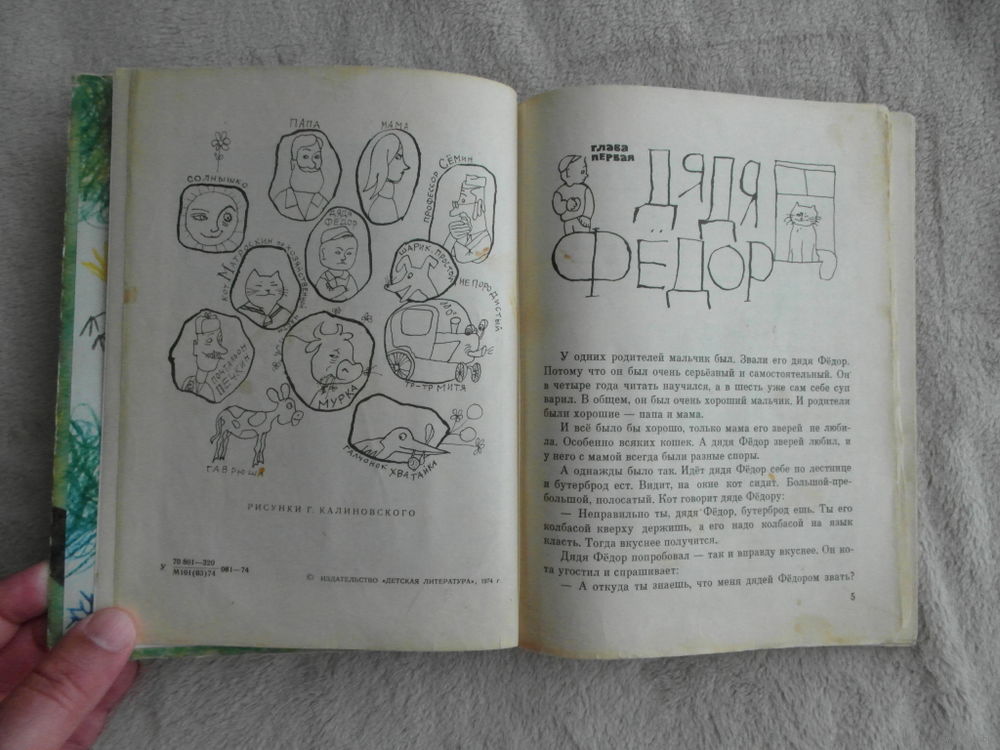 ПАПА
МАМА
СОЛНЫШКО
ДЯДЯ
ФЁДОР
ПРОФЕССОР СЁМИН
КОТ МАТРОСКИН
ШАРИК ПРОСТОЙ НЕПОРОДИСТЫЙ
ПОЧТАЛЬОН
ПЕЧКИН
МУРКА
ТР-ТР МИТЯ
ГАВРЮША
ГАЛЧОНОК ХВАТАЙКА
РИСУНКИ Г. КАЛИНОВСКОГО
У 70 801—320
М101(03)74 081—74
© ИЗДАТЕЛЬСТВО «ДЕТСКАЯ ЛИТЕРАТУРА», 1974 г.
глава
первая
ДЯДЯ
ФЁДОР
У одних родителей мальчик был. Звали его дядя Фёдор.
Потому что он был очень серьёзный и самостоятельный. Он
в четыре года читать научился, а в шесть уже сам себе суп
варил. В общем, он был очень хороший мальчик. И родители
были хорошие — папа и мама.
И всё было бы хорошо, только мама его зверей не люби-
ла. Особенно всяких кошек. А дядя Фёдор зверей любил, и
у него с мамой всегда были разные споры.
А однажды было так. Идёт дядя Фёдор себе по лестнице
и бутерброд ест. Видит, на окне кот сидит. Большой-пре-
большой, полосатый. Кот говорит дяде Фёдору:
— Неправильно ты, дядя Фёдор, бутерброд ешь. Ты его
колбасой кверху держишь, а его надо колбасой на язык
класть. Тогда вкуснее получится.
Дядя Фёдор попробовал — так и вправду вкуснее. Он ко-
та угостил и спрашивает:
— А откуда ты знаешь, что меня дядей Фёдором звать?
5